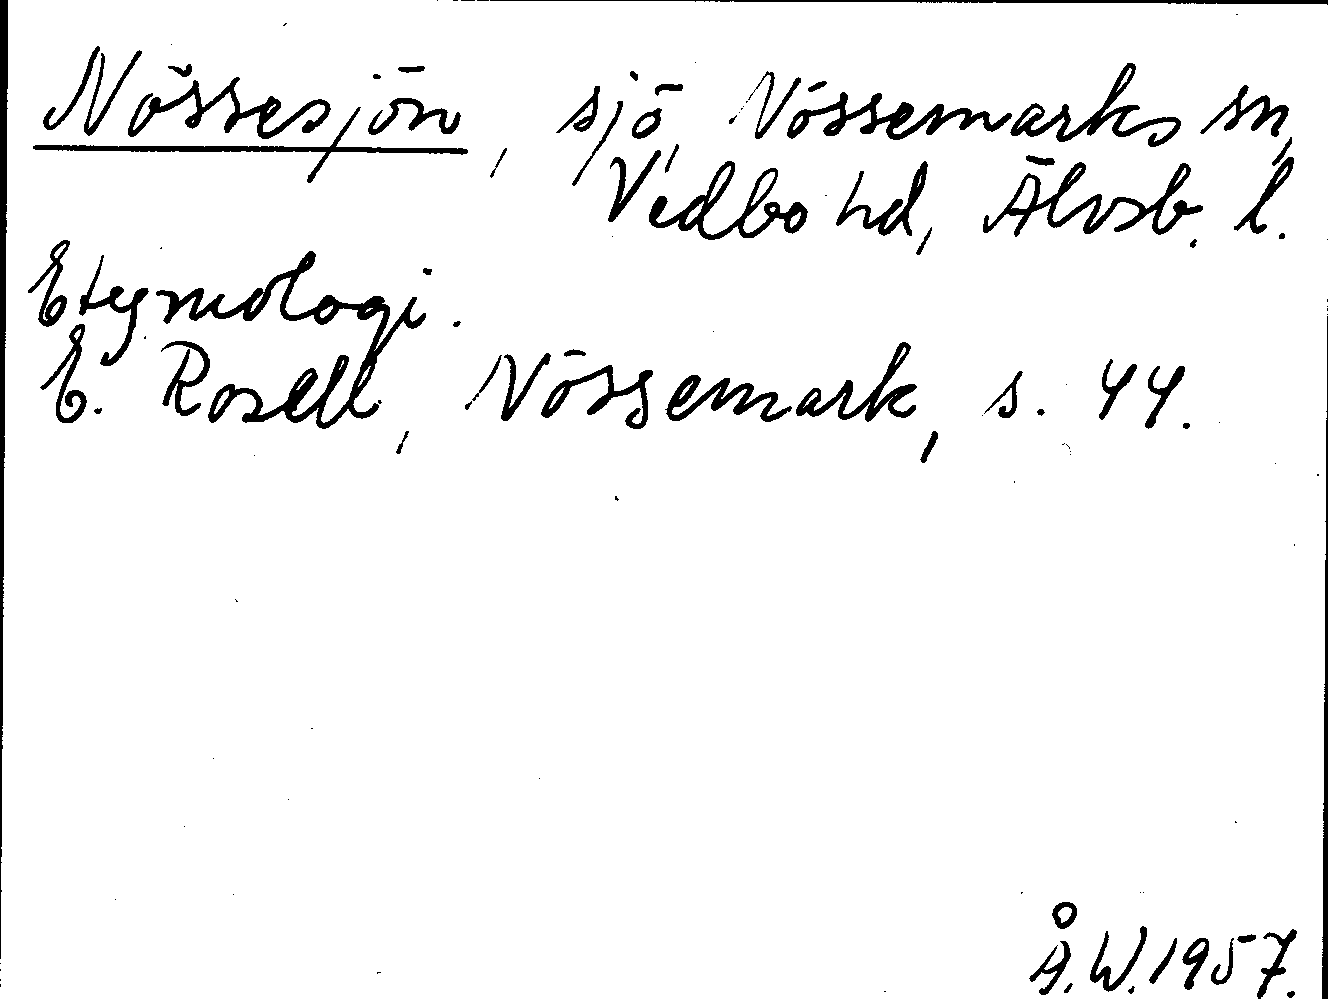 Nössesjön, sjö, Nössemarks sn,
Vedbo hd, Älvsb. l.
Etymologi.
E. Rosell, Nössemark, s. 44.
Å.W.1957.